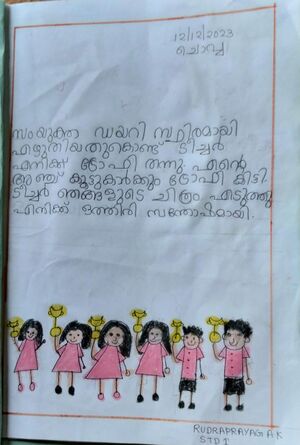 12/12/2023
ചൊവ്വ
സംയുക്താ ഡയറി സ്ഥിരമായി
എഴുതിയതുകൊണ്ട് ടീച്ചർ
എനിക്ക് ട്രോഫി തന്നു. എന്റെ
അഞ്ച് കൂട്ടുകാർക്കും ട്രോഫി കിട്ടി.
ടീച്ചർ ഞങ്ങളുടെ ചിത്രം എടുത്തു
എനിക്ക് ഒത്തിരി സന്തോഷമായി.
RUDRAPRAYAG A K
STD 1